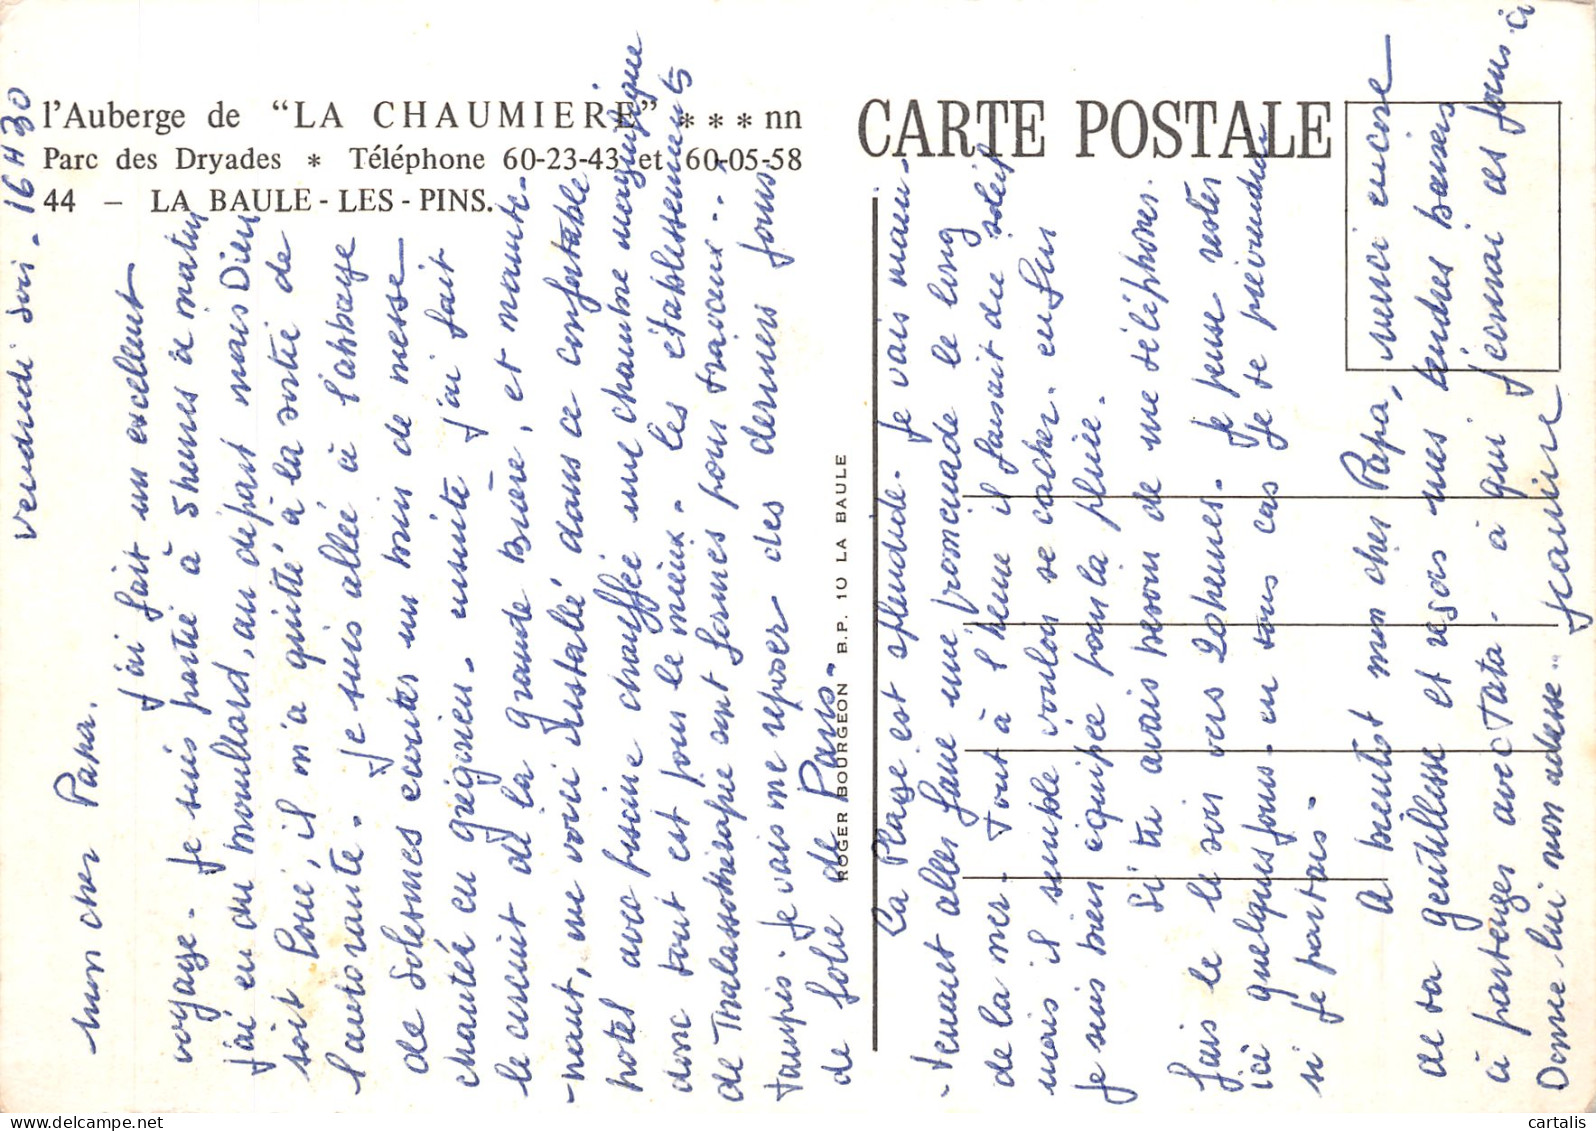 l'Auberge de "LA CHAUMIERE" * * * nn
Parc des Dryades * Téléphone 60-23-43 et 60-05-58
44 - LA BAULE-LES-PINS.
CARTE POSTALE
ROGER BOURGEON - B.P. 10 LA BAULE
vendredi soir - 16 H 30
Mon cher Papa.
J'ai fait un excellent
voyage. Je suis partie à 5 heures ce matin
J'ai eu du brouillard, au départ mais Dieu
soit loué, il m'a quitté à la sortie de
l'autoroute. Je suis allée à l'abbaye
de Solesmes écouter un bout de messe
chantée en grégorien. ensuite j'ai fait
le circuit de la Grande Brière, et mainte-
-nant, me voici installé dans ce confortable
hotel avec piscine chauffée une chambre magnifique
donc tout est pour le mieux. les établissements
de Thalassothérapie sont fermés pour travaux...
tampis. Je vais me reposer des derniers jours
de folie de Paris.
La Plage est splendide. Je vais main-
-tenant aller faire une promenade le long
de la mer. Tout à l'heure il faisait du soleil
mais il semble vouloir se cacher. enfin
Je suis bien équipée pour la pluie.
Si tu avais besoin de me téléphoner.
fais le le soir vers 20 heures. Je pense rester
ici quelques jours. en tous cas je te préviendrai
si je partais.
A bientôt mon cher Papa, merci encore
de ta gentillesse et reçois mes tendres baisers
à partager avec Tata. à qui j'écrirai ces jours ci
Donne lui mon adresse. Jeanine
cartalis
delcampe.net